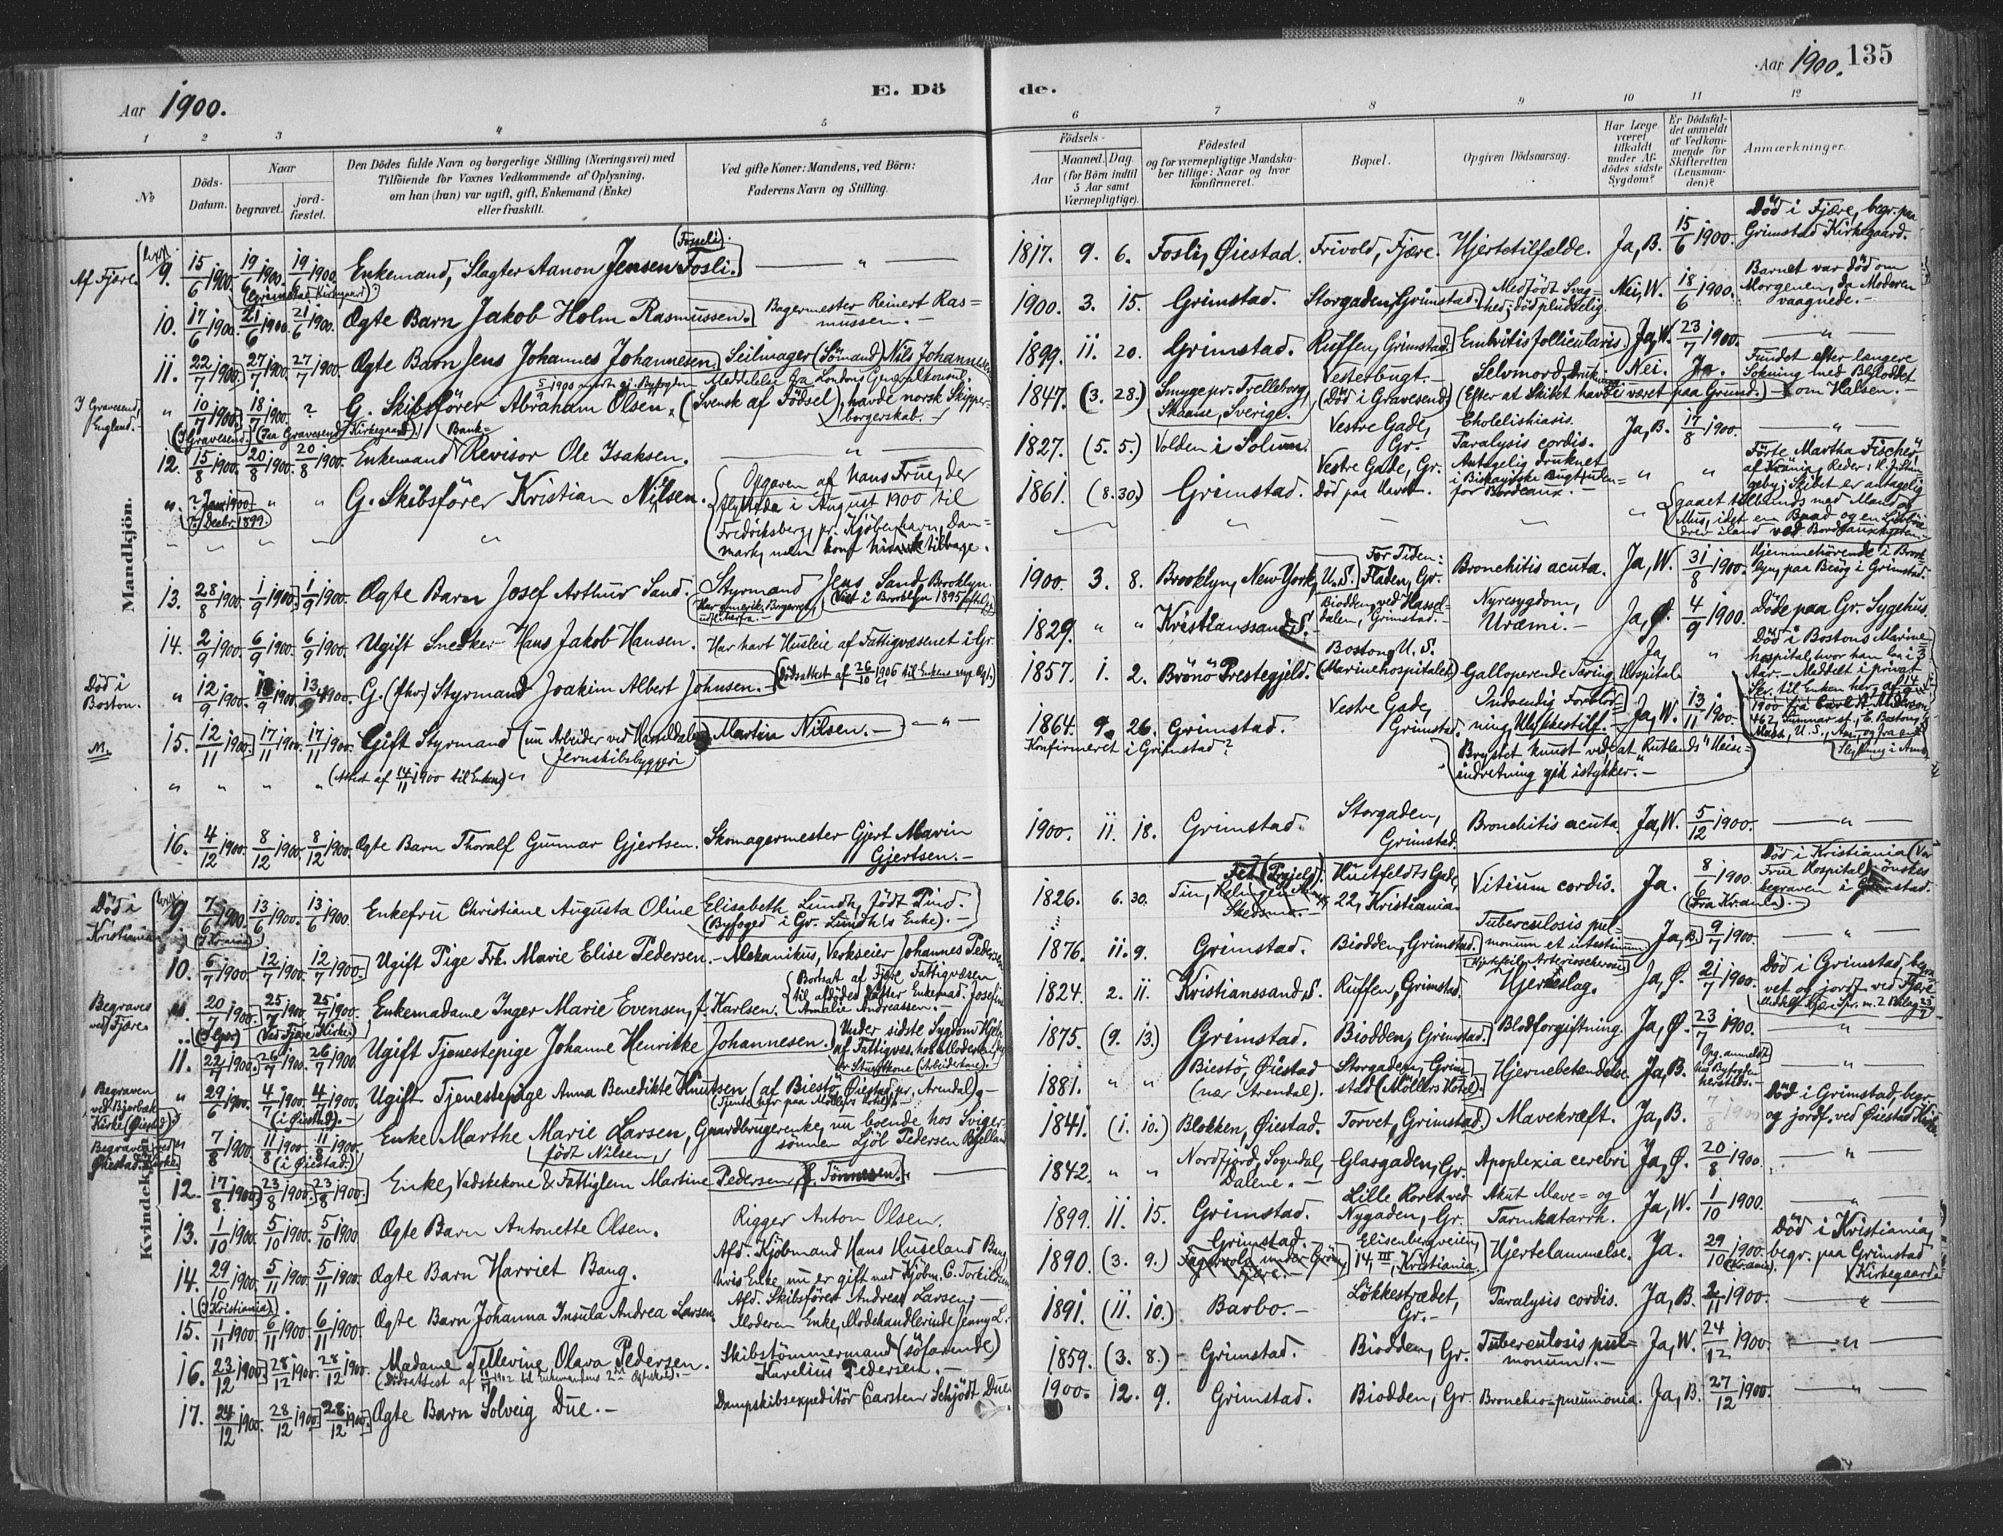 Aar 1900.
E. Dö
de.
Aar 1900. 135
1 2 3 4 5 6 7 8 9 10 11 12
No
Döds-Datum.
Naar
begravet. jord-fæstet.
Den Dödes fulde Navn og borgerlige Stilling (Næringsvei) med
Tilföiende for Voxnes Vedkommende af Oplysning,
om han (hun) var ugift, gift, Enkemand (Enke)
eller fraskilt.
Ved gifte Koner: Mandens, ved Börn:
Faderens Navn og Stilling.
Födsels-
Aar
Maaned. Dag.
(for Börn indtil
5 Aar samt
Værnepligtige).
Födested
og for værnepligtige Mandska-
ber tillige: Naar og hvor
konfirmeret.
Bopæl.
Opgiven Dödsaarsag.
Har Læge
været
tilkaldt
under Af-
dödes sidste
Sygdom?
Er Dödsfal-
det anmeldt
af Vedkom-
mende for
Skifteretten
(Lensman-
den)?
Anmærkninger.
Mandkjön.
Af Fjære. 9. 15/6 1900. 19/6 1900. 19/6 1900. Enkemand, Slagter Aanon Jensen Fosli. (Fosseli). — " — 1817. 9. 6. Fosli, Øiestad. Frivold, Fjære. Hjertetilfælde. Ja, B. 15/6 1900. Död i Fjære, begr. paa
Grimstad Kirkegaard.
(Grimstad Kirkegaard).
10. 17/6 1900. 21/6 1900. 21/6 1900. Ægte Barn Jakob Holm Rasmussen. Bagermester Reinert Ras=
mussen. — 1900. 3. 15. Grimstad. Storgaden, Grimstad. Medfödt Svag=
hed; död pludselig. Nei, W. 18/6 1900. Barnet var död om
Morgenen, da Moderen
vaagnede. —
11. 22/7 1900. 27/7 1900. 27/7 1900. Ægte Barn Jens Johannes Johannesen. Seilmager (Sömand) Nils Johannesen 1899. 11. 20. Grimstad. Ruffen, Grimstad. Entritis follicularis. Ja, W. 23/7 1900. — " —
I Gravesend,
England. — " 10/7 1900. 18/7 1900. ? G. Skibsförer Abraham Olsen, (Svensk af Födsel) havde norsk Skipper=
borgerskab. — Meddelelse fra Londons Generalkonsul. 1847. (3. 28.) Smyge pr. Trelleborg,
Skaane, Sverige. Vesterbugt. —
(Död i Gravesend) Selvmord,
(Efter at Skibet havde været paa Grund.) — Nei. Ja. Fundet efter længere
Sökning med
om Halsen. —
(I Gravesend.) (Paa Gravesend Kirkegaard.)
12. 15/8 1900. 20/8 1900. 20/8 1900. Enkemand Bank-Revisor Ole Isaksen. — " — 1827. (5. 5.) Volden i Solum. Vestre Gade,
Gr. Cholelithiasis.
Paralysis cordis. Ja, B. 17/8 1900. — " —
" ? Jan. 1900.
? Decbr. 1899. " " G. Skibsförer Kristian Nilsen. Opgaven af Hans Frue, der
flyttede i August 1900 til
Fredriksberg, pr. Kjöbenhavn, Dan=
mark, men kom tilbage. 1861. (8. 30.) Grimstad. Vestre Gade, Gr.
Död paa Havet. Antagelig druknet
i Biskayiske Bugt uden=
for Bordeaux. — " " Förte Martha Fischer
af Krania, Skibet er antagelig
gaaet tilbunds med Mand og
Mus, idet en Baad og en
drev iland ved Bordeauxkysten.
13. 28/8 1900. 1/9 1900. 1/9 1900. Ægte Barn Josef Arthur Sand. Styrmand Jens Sand, Brooklyn.
(Har amerik. Borgerret, 1900. 3. 8. Brooklyn, New York, U.S. For Tiden:
Fladen, Gr. Bronchitis acuta. Ja, W. 31/8 1900. Hjemmehörende i Brook=
lyn, paa Besög i Grimstad.
14. 2/9 1900. 6/9 1900. 6/9 1900. Ugift Snedker Hans Jakob Hansen. Har havt Husleie af Fattigvæsenet i Gr. 1829. " " Kristianssand, S. Biodden, ved Hassel=
dalen, Grimstad. — Nyresygdom,
Uræmi. — Ja, Ø. 4/9 1900. Döde paa Gr. Sygehus.
Död i
Boston. " 12/9 1900. 13/9 1900. 13/9 1900. G. (fhv.) Styrmand Joakim Albert Johnsen. — (Dödsattest af 26/10 1906 til Enkens nye Ægt.) 1857. 1. 2. Brönö Prestegjeld. Boston, U.S.
(Marinehospitalet.) Galloperende Tæring Ja,
Hospital " Död i Bostons Marine=
hospital, hvor han lå i 3
Aar. — Meddelt i privat
Skr. til Enken her, af 14/9
1900 fra Carl A. Anderson,
462, Sumner st., E. Boston,
Mass., U.S., Am.
M. 15. 12/11 1900. 17/11 1900. 17/11 1900. Gift Styrmand (nu Arbeider ved Hasseldalens
Jernskibsbyggeri Martin Nilsen. — — " — 1864. 9. 26. Grimstad.
Konfirmeret i Grimstad? Vestre Gade,
Grimstad. Indvendig Forblöd=
ning, Ulykkestilf. —
Brystet knust ved at "Rutlands" Heise=
indretning gik istykker. — Ja, W. 13/11 1900.
" " " " (Attest af 14/11 1900 til Enken) "
16. 4/12 1900. 8/12 1900. 8/12 1900. Ægte Barn Thoralf Gunnar Gjertsen. Skomagermester Gjert Marin
Gjertsen. — 1900. 11. 18. Grimstad. Storgaden,
Grimstad. Bronchitis acuta Ja, W. 5/12 1900. — " —
Kvindekjön.
Död i
Kristiania 9. 7/6 1900. 13/6 1900. 13/6 1900. Enkefru Christiane Augusta Oline Elisabeth Lundh, födt Pind.
(Byfoged i Gr. Lundhs Enke). — 1826. 6. 30. Fet (Prgjeld). Huitfeldts Gade,
22, Kristiania. Vitium cordis. Ja. 8/6 1900.
(Fra Kr.ania). Död i Kristiania (Vor
Frue Hospital) önskes
begraven i Grimstad.
(I Krania)
10. 6/7 1900. 12/7 1900. 12/7 1900. Ugift Pige Frk. Marie Elise Pedersen. — Mekanikus, Verkseier Johannes Pedersen 1876. 11. 9. Grimstad. Biodden, Grimstad. Tuberculosis pul=
monum et intestinum. Ja, B. 9/7 1900. — " —
Begraves
ved Fjære. " 20/7 1900. 25/7 1900. 25/7 1900. Enkemadame Inger Marie Evensen, f. Karlsen. Bortsat af Fjære Fattigvæsen
til afdöde Datter Enkemad. Josefine
Amalie Andreassen. 1824. 2. 11. Kristianssand, S. Ruffen, Grimstad. Hjerteslag. Ja, Ø. 21/7 1900. Död i Grimstad, begra=
vet og jordf. ved Fjære
(I Gr.) (Ved Fjære Kirke)
11. 22/7 1900. 26/7 1900. 26/7 1900. Ugift Tjenestepige Johanne Henrikke Johannesen. Under sidste Sygdom
af Fattigvæs. hos Moderen, 1875. (9. 13.) Grimstad. Biodden, Grimstad. Blodforgiftning. Ja, Ø. 23/7 1900. "
Begraven
ved Bjorbæk
Kirke (Øiestad). " 29/6 1900. 4/7 1900. 4/7 1900. Ugift Tjenestepige Anna Benedikte Knutsen (af Biestö, Øiestad, pr. Arendal).
(i Øiestad.) 1881. " " Biestö, Øiestad
(nær Arendal). Storgaden, Grim=
stad (Möllers Hotel) Hjernebetændelse. Ja, B. Opg. anmeldt
hos Byfogden
hersteds. — " —
Begraven ved
Øiestad Kirke. " 7/8 1900. 11/8 1900. 11/8 1900. Enke Marthe Marie Larsen, Gaardbrugerenke, nu boende hos Sviger=
födt Nilsen, sönnen Ljöl Pedersen Bjelland 1841. (1. 10.) Blokken, Øiestad. Torvet, Grimstad. Mavekræft. Ja, B. 7/8 1900 Död i Grimstad, begr.
og jordf. ved Øiestad Kirke
(i Øiestad.)
12. 17/8 1900. 23/8 1900. 23/8 1900. Enke, Vadskekone & Fattiglem Martine Pedersen, f. Tönnesen. — 1842. " " Nordfjord, Sogndal,
Dalene. — Glasgaden, Gr. Apoplexia cerebri Ja, Ø. 20/8 1900. — " —
13. 1/10 1900. 5/10 1900. 5/10 1900. Ægte Barn Antonette Olsen. Rigger Anton Olsen. 1899. 11. 15. Grimstad. Lille Roret ved
Nygaden, Gr. Akut Mave= og
Tarmkatarrh. Ja, W. 1/10 1900. — " —
14. 29/10 1900. 5/11 1900. 5/11 1900. Ægte Barn Harriet Bang. Afd. Kjöbmand Hans Huseland Bang
hvis Enke nu er gift med Kjöbm. C. Torkildsen 1890. (3. 9.) Grimstad. Elisenbergveien,
14, III, Kristiania. Hjertelammelse. Ja. 29/10 1900.
(Krania). Död i Kristiania,
begr. paa Grimstad
Kirkegaard.
(I Kristiania)
15. 1/11 1900. 6/11 1900. 6/11 1900. Ægte Barn Johanna Insula Andrea Larsen. Afd. Skibsförer Andreas Larsen, —
Moderen Enke, Modehandlerinde Jenny L. 1891. (11. 10.) Barbo. — Løkkestrædet,
Gr. — Paralysis cordis. Ja, B. 2/11 1900. "
16. 23/12 1900. 28/12 1900. 28/12 1900. Madame Tellevine Olava Pedersen.
(Dödsattest af 1902 til Enkemandens 2det Ægteskab). — Skibstömmermand (söfarende)
Karelius Pedersen. — 1859. (3. 8.) Grimstad. Biodden, Gr. Tuberculosis pul=
monum. — Ja, W. 24/12 1900. — " —
17. 24/12 1900. 28/12 1900. 28/12 1900. Ægte Barn Solveig Due. — Dampskibsexpeditör Carsten Schjödt Due 1900. 12. 9. Grimstad. Biodden, Gr. Broncho=pneumonia. Ja, B. 27/12 1900. — " —